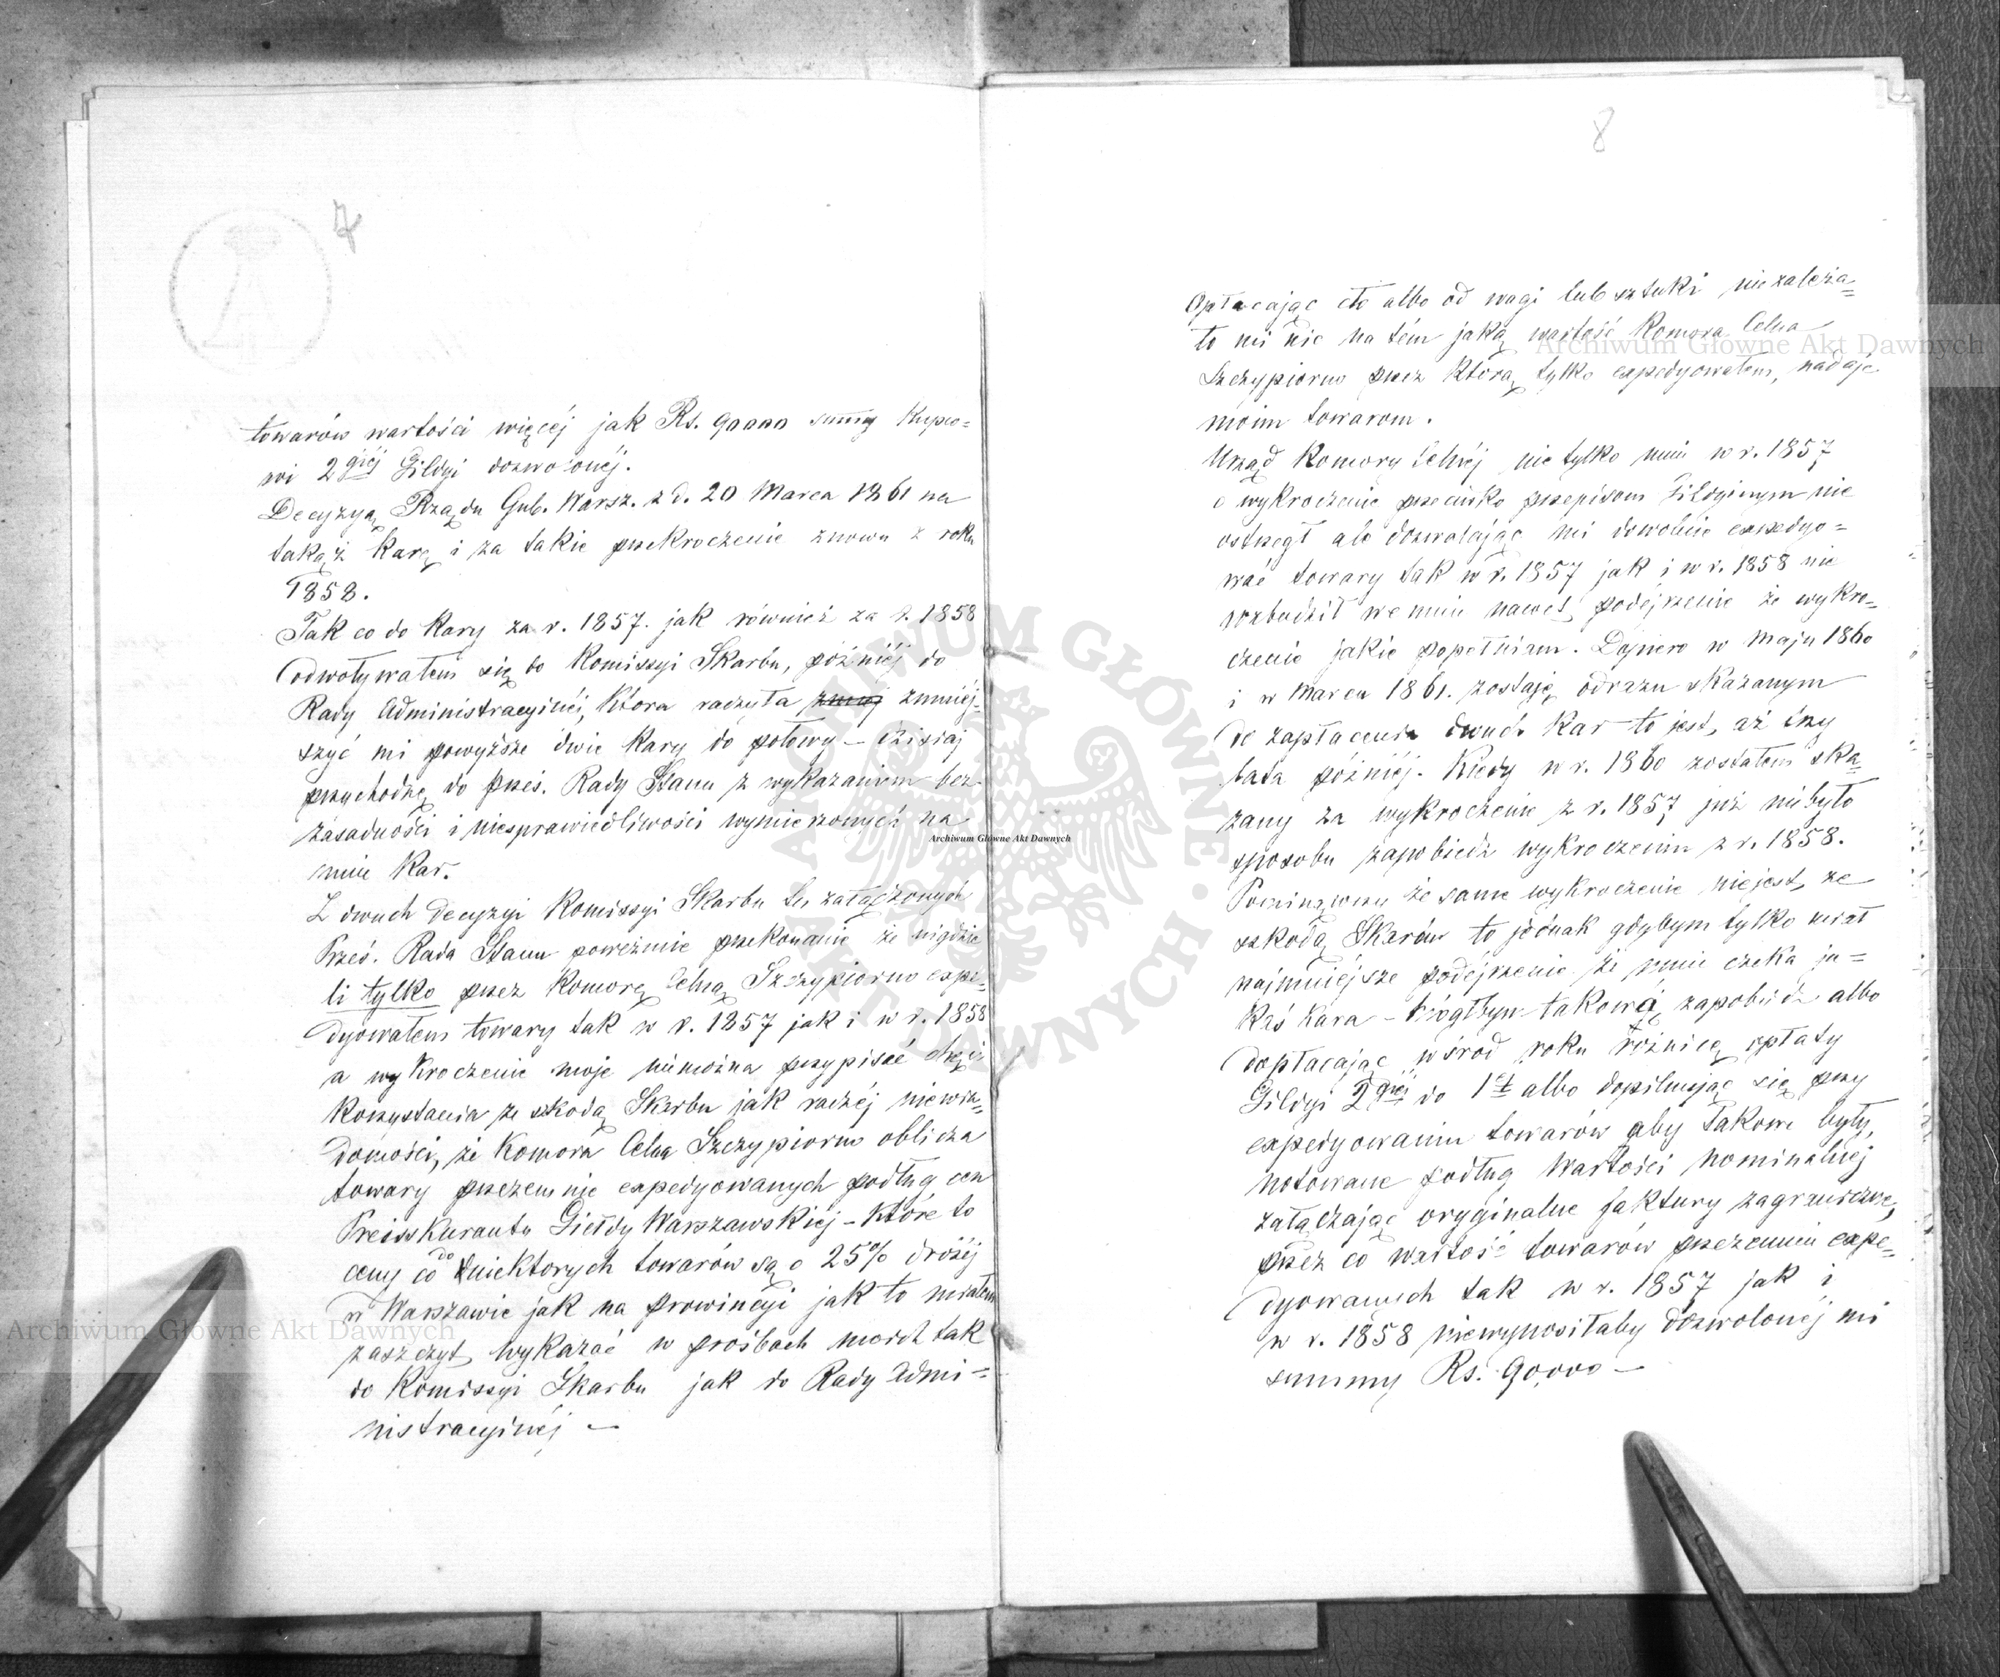 7
towarów wartości więcéj jak Rs. 90000 summy Kupco=
wi 2giéj Gildyi dozwolonéj.
Decyzyą Rządu Gub. Warsz. z d. 20 Marca 1861 na
takąż Karę i za takie przekroczenie znowu z roku
1858.
Tak co do Kary za r. 1857. jak również za r. 1858
odwoływałem się do Komissyi Skarbu, późniéj do
Rady Administracyinéj, Która raczyła zmniéj-
szyć mi powyższe dwie Kary do połowy – dzisiaj
przychodzę do Prześ. Rady Stanu z wykazaniem bez-
zasadności i niesprawiedliwości wymierzonych na
mnie Kar.
Z dwuch Decyzyi Komissyi Skarbu tu załączonych
Prześ. Rada Stanu poweźmie przekonanie że nigdzie
li tylko przez Komorę Celną Szczypiorno expe-
dyowałem towary tak w r. 1857 jak i w r. 1858
a wykroczenie moje niemożna przypisać chęci
Korzystania ze szkodą Skarbu jak raczéj niewia-
domości, że Komora Celna Szczypiorno oblicza
towary przezemnie expedyowanych podług cen
Preisskurantu Giełdy Warszawskiéj – Które to
ceny co do niektorych towarów są o 25% drożéj
w Warszawie jak na prowincyi jak to miałem
zaszczyt wykazać w prośbach moich tak
do Komissyi Skarbu jak do Rady Admi-
nistracyinéj –
8
Opłacając cło albo od wagi lub sztuki niezależa=
ło mi nic na tém jaką wartość Komora Celna
Szczypiorno przez Którą tylko expedyowałem, nadaje
moim towarom.
Urząd Komory Celnéj nietylko mnie w r. 1857
o wykroczenie przeciwko przepisom Gildyinym nie
ostrzegł ale dozwalając mi dowolnie expedyo=
wać towary tak w r. 1857 jak i w r. 1858 nie
rozbudził we mnie nawet podejrzenie że wykro-
czenie jakie popełniam. Dopiero w Maju 1860
i w Marcu 1861. zostaję odrazu skazanym
do zapłacenia dwuch Kar to jest, aż trzy
lata późniéj. Kiedy w r. 1860 zostałem ska-
zany za wykroczenie z r. 1857 już niebyło
sposobu zapobiedz wykroczeniu z r. 1858.
Pominąwszy że same wykroczenie niejest ze
szkodą Skarbu to jednak gdybym tylko miał
najmniejsze podejrzenie że mnie czeka ja=
Kaś Kara – mógłbym takową zapobiedz albo
dopłacając wśrod roku rożnicę opłaty
Gildyi 2giéj do 1éj albo dopilnując się przy
expedyowaniu towarów aby takowe były,
notowane podług Wartości nominalnéj
załączając oryginalne faktury zagraniczne,
przez co wartość towarów przezemnie expe-
dyowanych tak w r. 1857 jak i
w r. 1858 niewynosiłaby dozwolonéj mi
summy Rs. 90,000 –
Archiwum Główne Akt Dawnych
Archiwum Główne Akt Dawnych
Archiwum Główne Akt Dawnych
ARCHIWUM GŁÓWNE AKT DAWNYCH